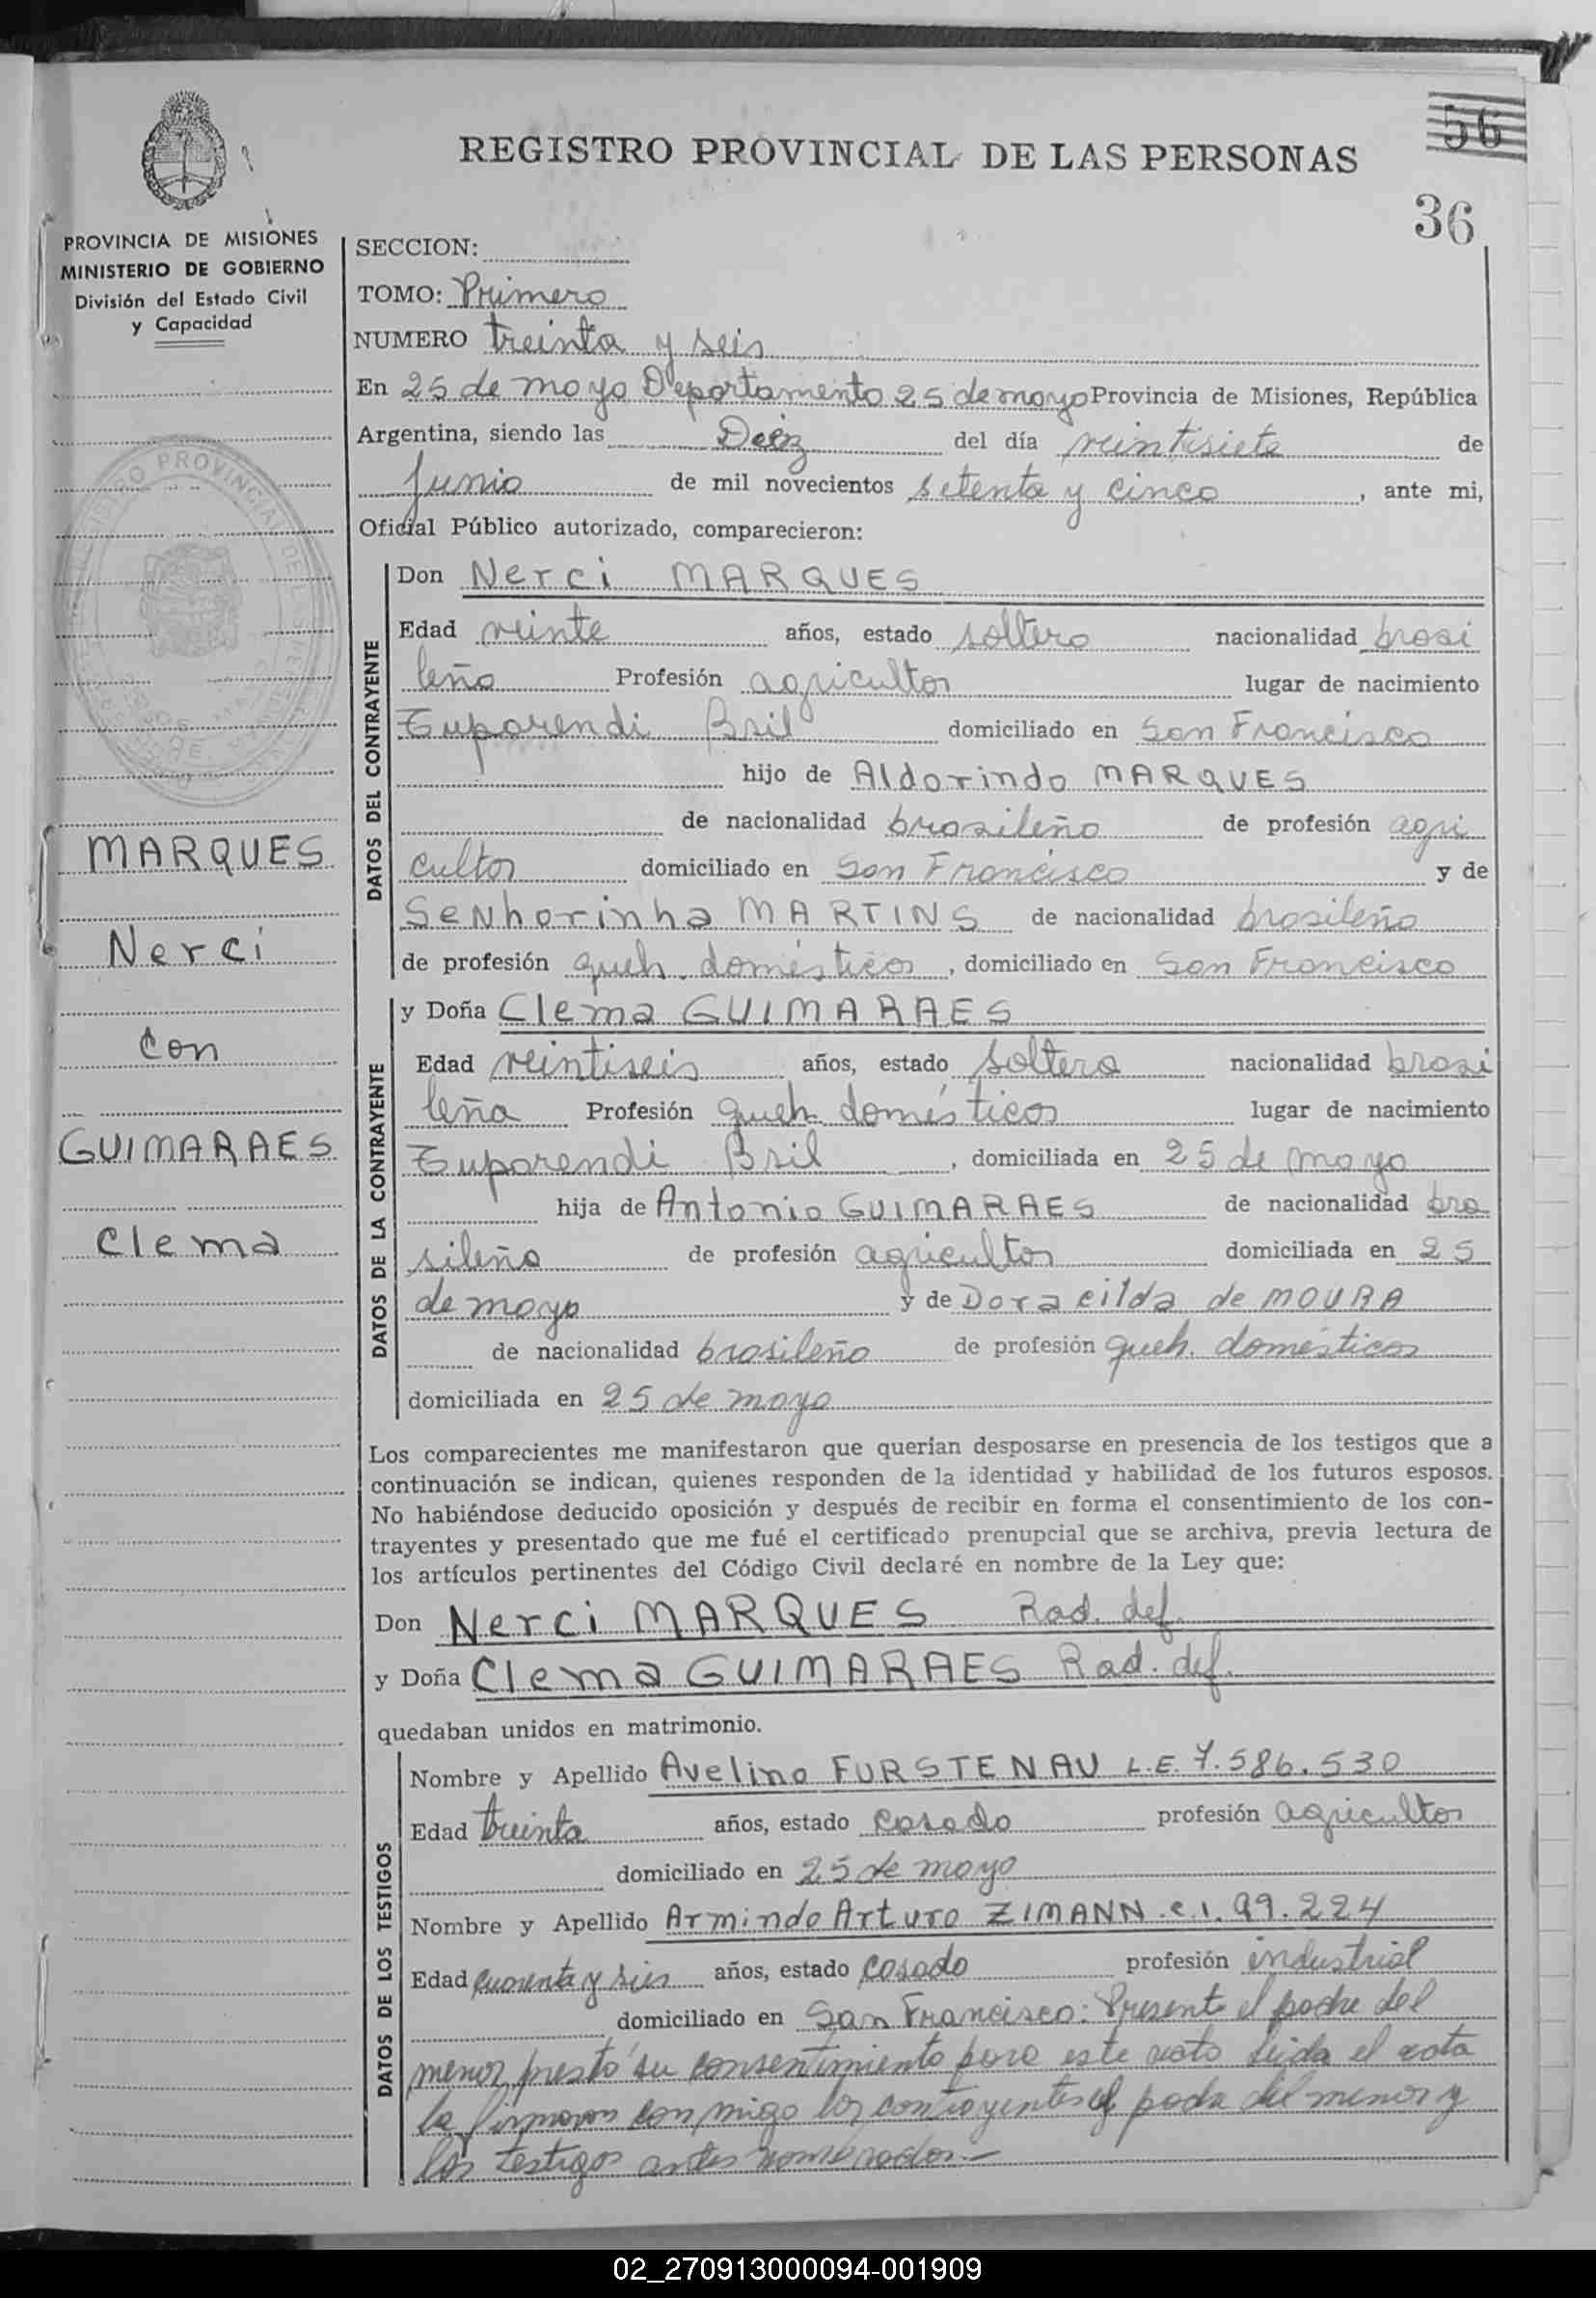 56
REGISTRO PROVINCIAL DE LAS PERSONAS
36
PROVINCIA DE MISIONES
MINISTERIO DE GOBIERNO
División del Estado Civil
y Capacidad
MARQUES
Nerci
Con
GUIMARAES
Clema
SECCION:
TOMO: Primero
NUMERO treinta y seis
En 25 de mayo Departamento 25 de mayo Provincia de Misiones, República
Argentina, siendo las Deiz del día veintisiete de
Junio de mil novecientos setenta y cinco, ante mi,
Oficial Público autorizado, comparecieron:
DATOS DEL CONTRAYENTE
Don Nerci MARQUES
Edad veinte años, estado soltero nacionalidad brasi
leño Profesión agricultor lugar de nacimiento
Tuparendi Bsil domiciliado en San Francisco
hijo de Aldorindo MARQUES
de nacionalidad brasileño de profesión agri
cultor domiciliado en San Francisco y de
Senhorinha MARTINS de nacionalidad brasileña
de profesión queh. domésticos, domiciliado en San Francisco
DATOS DE LA CONTRAYENTE
y Doña Clema GUIMARAES
Edad veintiseis años, estado soltera nacionalidad brasi
leña Profesión queh. domésticos lugar de nacimiento
Tuparendi Bsil, domiciliada en 25 de mayo
hija de Antonio GUIMARAES de nacionalidad bra
sileño de profesión agricultor domiciliada en 25
de mayo y de Doracilda de MOURA
de nacionalidad brasileña de profesión queh. domésticos
domiciliada en 25 de mayo
Los comparecientes me manifestaron que querían desposarse en presencia de los testigos que a
continuación se indican, quienes responden de la identidad y habilidad de los futuros esposos.
No habiéndose deducido oposición y después de recibir en forma el consentimiento de los con-
trayentes y presentado que me fué el certificado prenupcial que se archiva, previa lectura de
los artículos pertinentes del Código Civil declaré en nombre de la Ley que:
Don Nerci MARQUES Rad. def.
y Doña Clema GUIMARAES Rad. def.
quedaban unidos en matrimonio.
DATOS DE LOS TESTIGOS
Nombre y Apellido Avelino FURSTENAU L.E. 7.586.530
Edad treinta años, estado casado profesión agricultor
domiciliado en 25 de mayo
Nombre y Apellido Armindo Arturo ZIMANN c.i. 99.224
Edad cuarenta y seis años, estado casado profesión industrial
domiciliado en San Francisco: Presente el padre del
menor prestó su consentimiento para este acto leida el acta
la firmaron conmigo los contrayentes el padre del menor y
los testigos antes nombrados.-
02_270913000094-001909